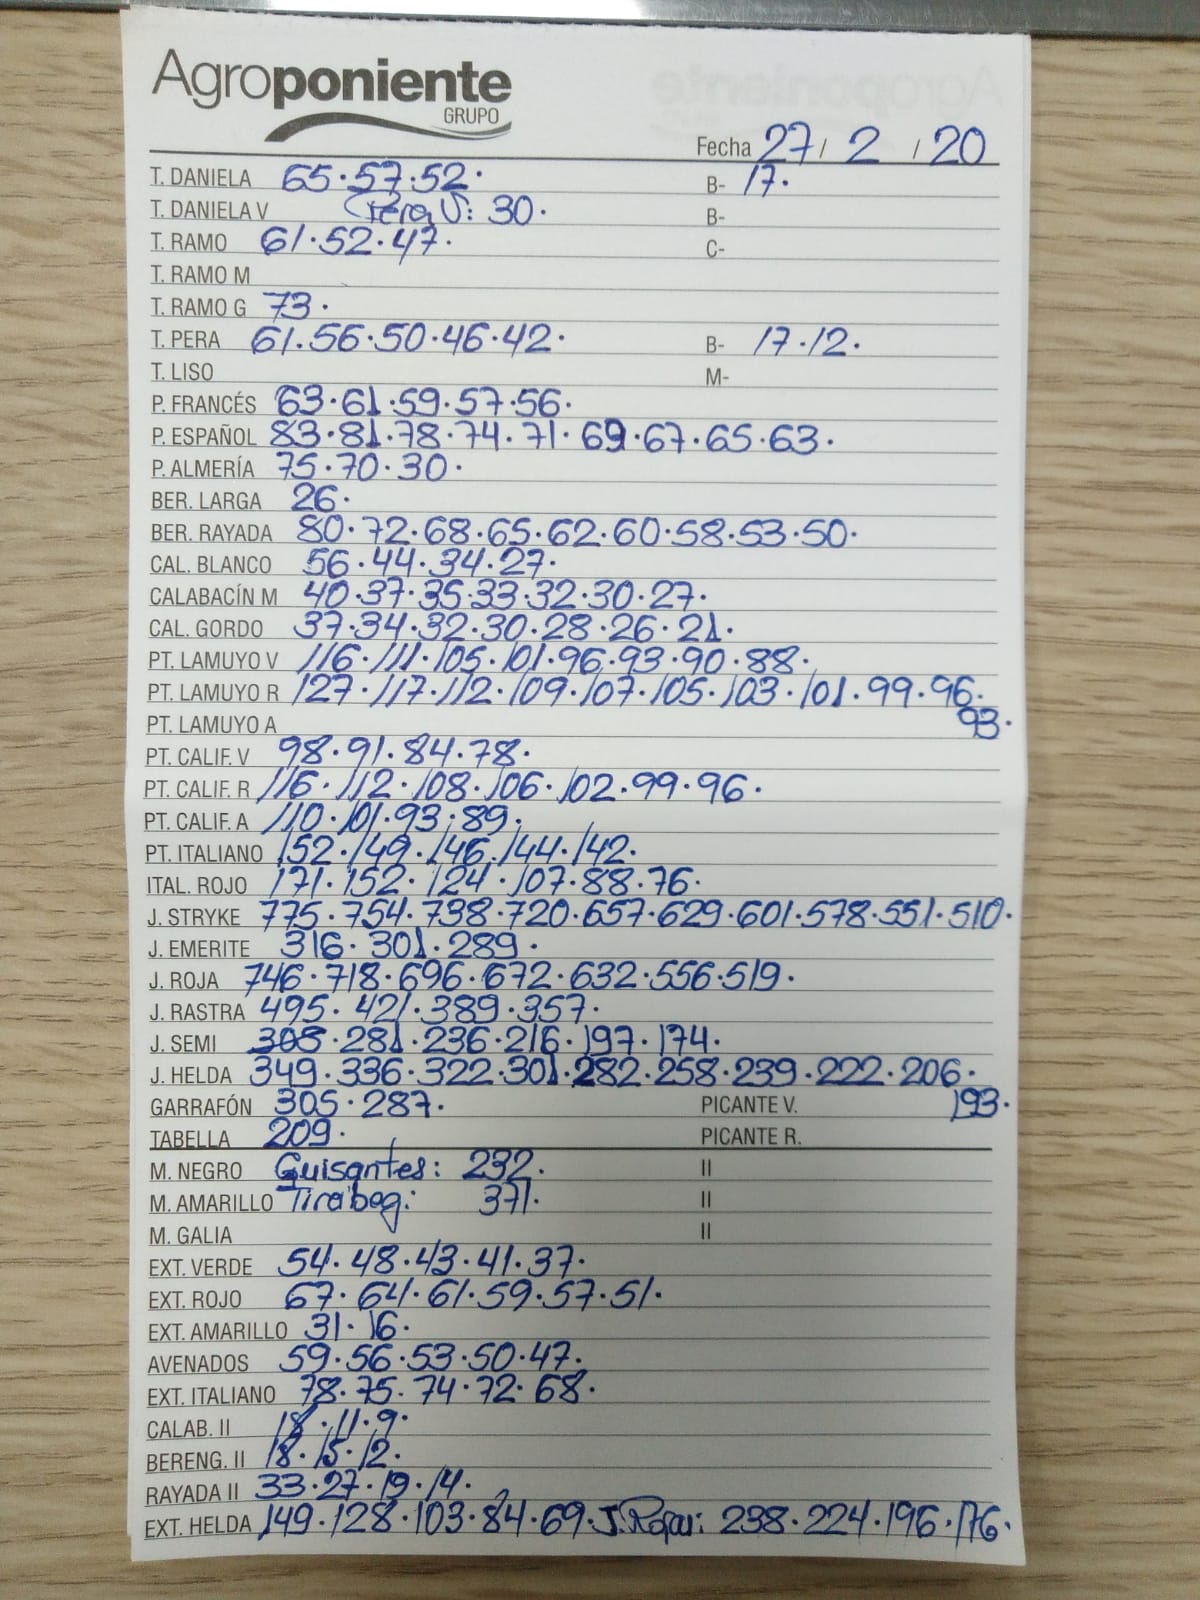 Agroponiente
GRUPO
Fecha 27 / 2 / 20
T. DANIELA 65·57·52· B- 17·
T. DANIELA V Pera V: 30· B-
T. RAMO 61·52·47· C-
T. RAMO M
T. RAMO G 73·
T. PERA 61·56·50·46·42· B- 17·12·
T. LISO M-
P. FRANCÉS 63·61·59·57·56·
P. ESPAÑOL 83·81·78·74·71·69·67·65·63·
P. ALMERÍA 75·70·30·
BER. LARGA 26·
BER. RAYADA 80·72·68·65·62·60·58·53·50·
CAL. BLANCO 56·44·34·27·
CALABACÍN M 40·37·35·33·32·30·27·
CAL. GORDO 37·34·32·30·28·26·21·
PT. LAMUYO V 116·111·105·101·96·93·90·88·
PT. LAMUYO R 127·117·112·109·107·105·103·101·99·96·
PT. LAMUYO A 93·
PT. CALIF. V 98·91·84·78·
PT. CALIF. R 116·112·108·106·102·99·96·
PT. CALIF. A 110·101·93·89·
PT. ITALIANO 152·149·146·144·142·
ITAL. ROJO 171·152·124·107·88·76·
J. STRYKE 775·754·738·720·657·629·601·578·551·510·
J. EMERITE 316·301·289·
J. ROJA 746·718·696·672·632·556·519·
J. RASTRA 495·421·389·357·
J. SEMI 308·281·236·216·197·174·
J. HELDA 349·336·322·301·282·258·239·222·206·
GARRAFÓN 305·287· PICANTE V. 193·
TABELLA 209· PICANTE R.
M. NEGRO Guisantes: 232· II
M. AMARILLO Tirabeq: 371· II
M. GALIA II
EXT. VERDE 54·48·43·41·37·
EXT. ROJO 67·64·61·59·57·51·
EXT. AMARILLO 31·16·
AVENADOS 59·56·53·50·47·
EXT. ITALIANO 78·75·74·72·68·
CALAB. II 18·11·9·
BERENG. II 18·15·12·
RAYADA II 33·27·19·14·
EXT. HELDA 149·128·103·84·69· J. Rojas: 238·224·196·176·